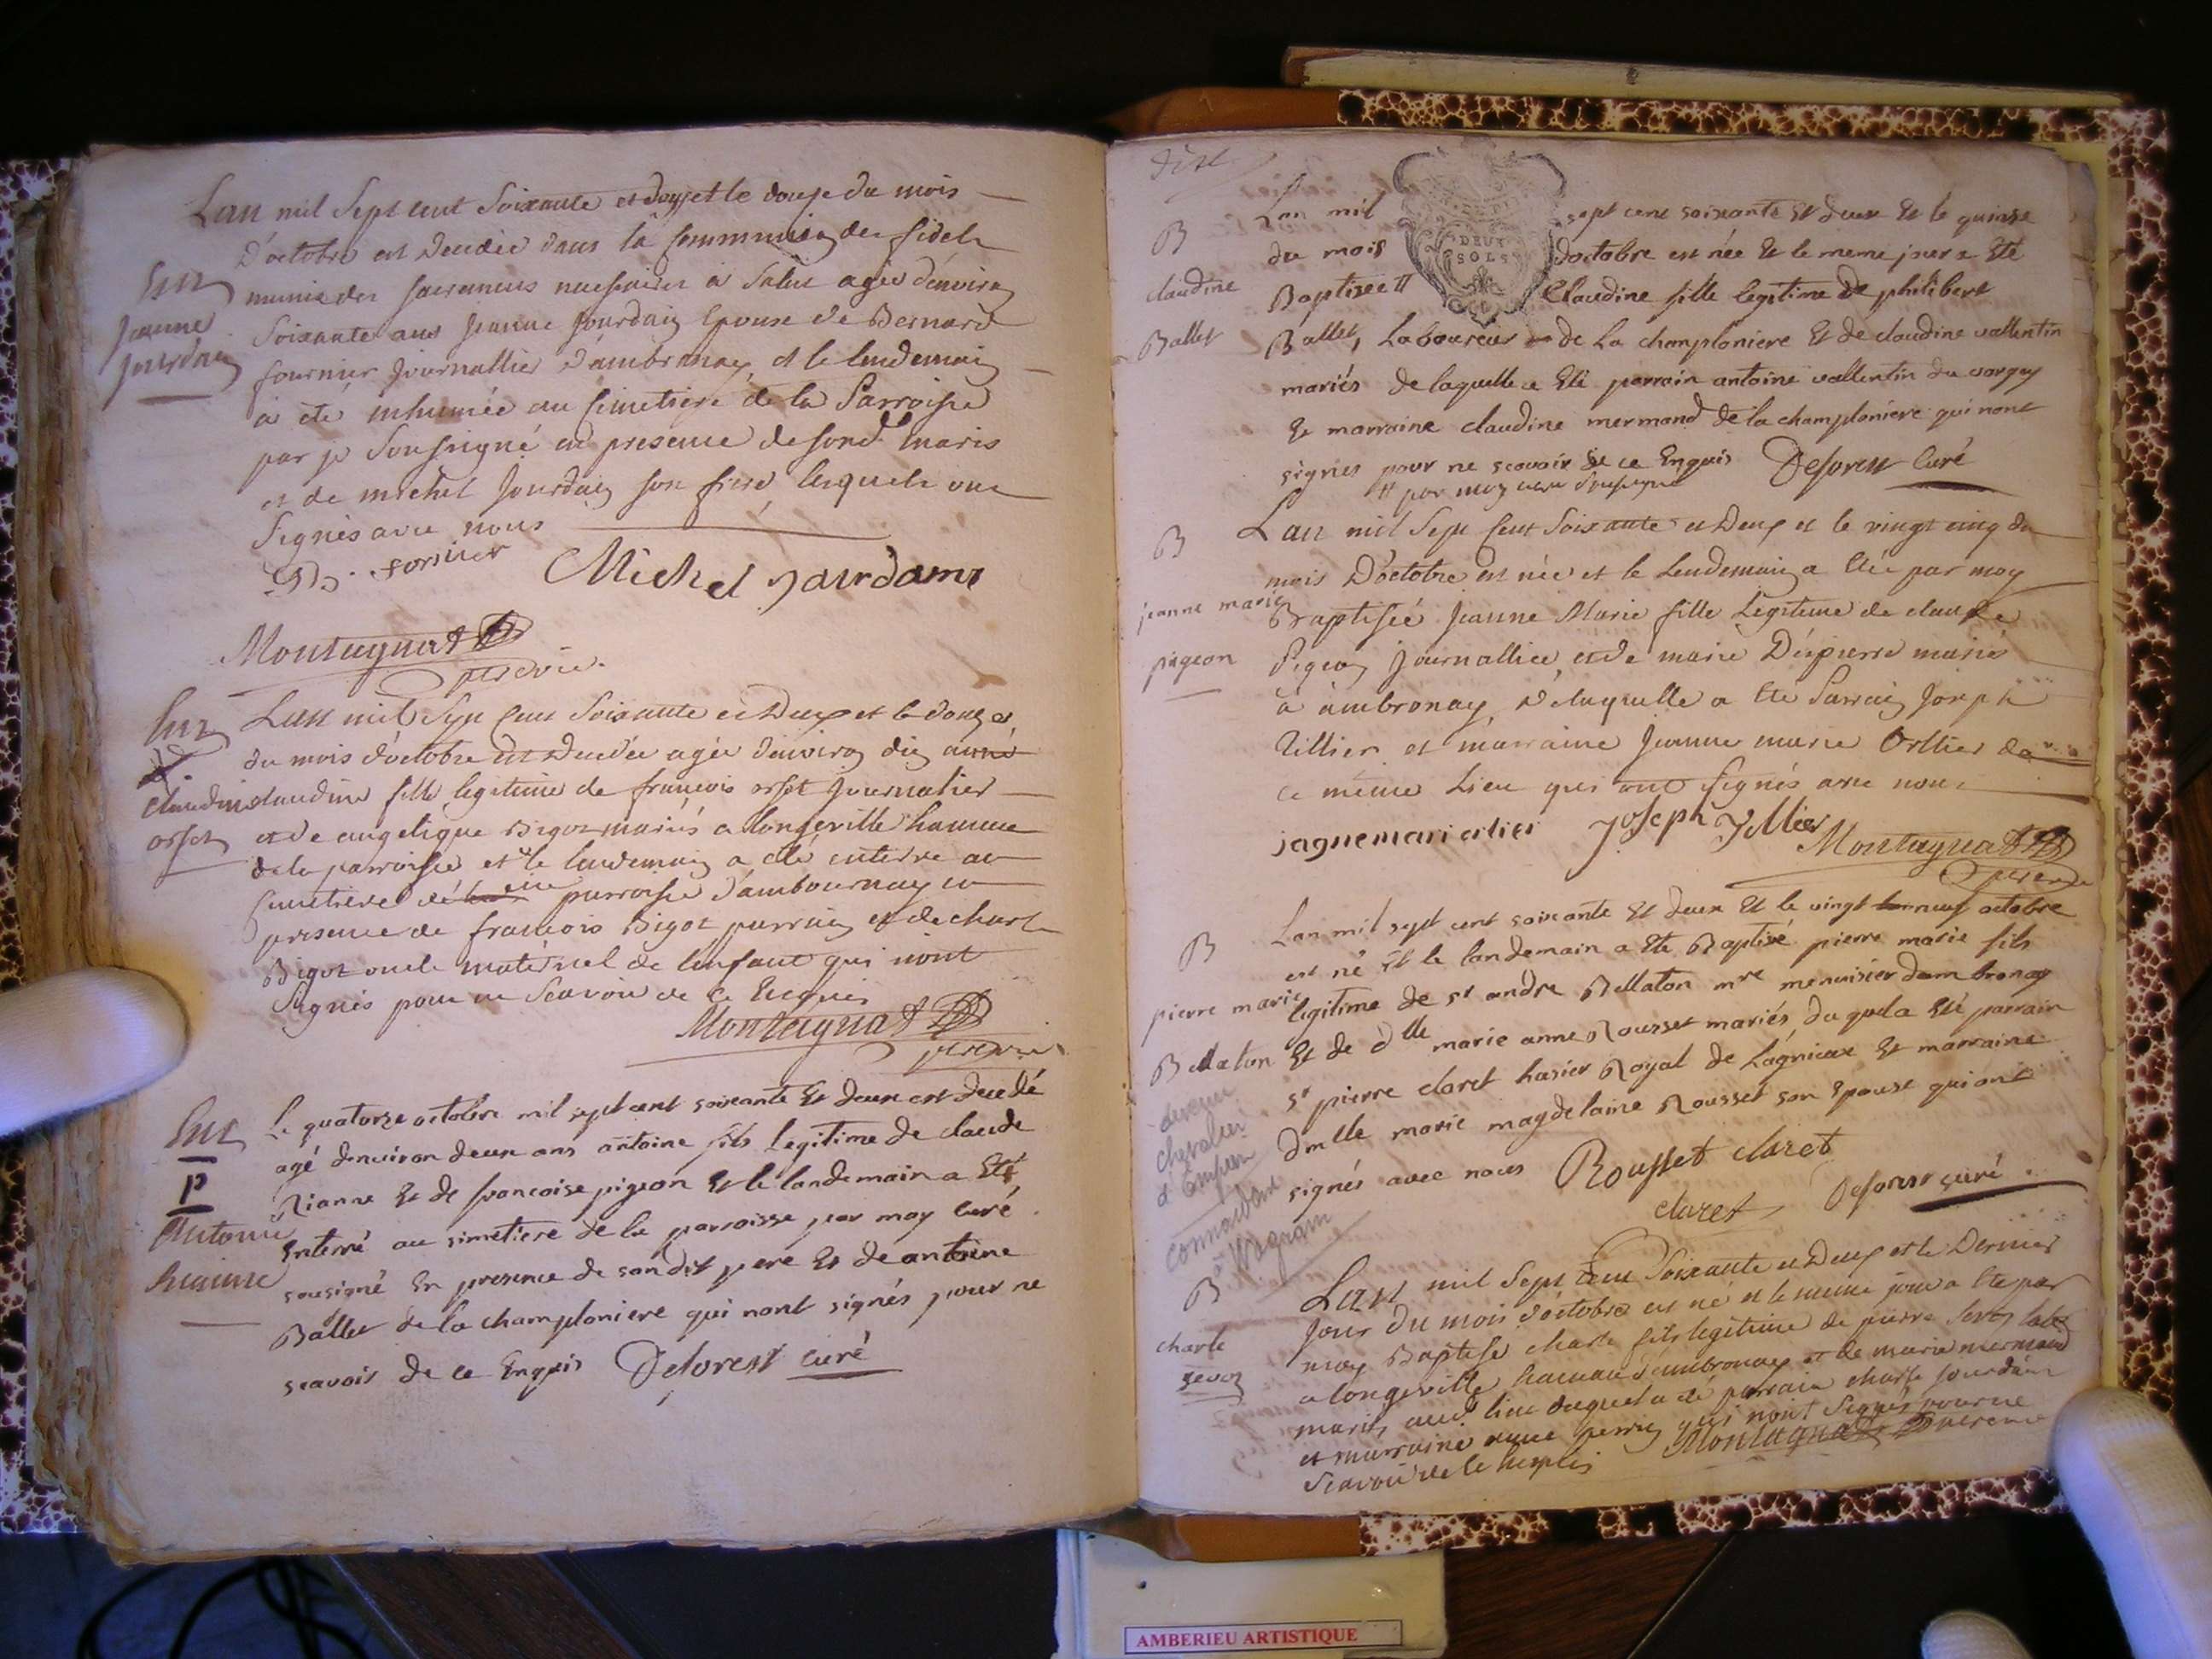 Lan mil Sept cent Soixante et deux et le douze du mois
D'octobre est decedée dans la Communion des fidels
munie des sacremens necessaires a salut agée d'environ
Ent
Jeanne
Jourdain
Soixante ans Jeanne Jourdain Epouse de Bernard
fournier Journallier d'ambronay et le lendemain
a été inhumée au Cimetiere de la Parroisse
par je Soussigné en presence de sond. maris
et de michel Jourdain son frere lesquels ont
Signés avec nous
B. fornier
Michel Jourdam
Montagnat
Ent
Claudine
orset
Lan mil Sept Cent Soixante et Deux et le douze
du mois d'octobre est Decedée agée d'environ dix
claudine fille legitime de francois orset Journalier
et de angelique Bigot mariés a longeville hameau
de la parroisse et le lendemain a été enterre au
Cimetiere de parroisse d'ambournay en
presence de francois Bigot parrain et de charle
Bigot oncle maternel de l'enfant qui n'ont
Signés pour ne Scavoir de ce Enquis
Montagnat
Ent
P
Antoine
rianne
Le quatorze octobre mil sept cent soixante Et deux est decedé
agé d'environ deux ans antoine fils Legitime de claude
Rianne Et de francoise pigeon Et le landemain a Eté
Enterré au simetiere de la parroisse par moy Curé
sousigné En presence de son dit pere Et de antoine
Ballet de la champloniere qui nont signés pour ne
scavoir de ce Enquis Deforest curé
B
claudine
Ballet
DEUX
SOLS
Lan mil sept cent soixante Et deux Et le quinze
du mois doctobre est née Et le meme jour a Eté
Baptisee # Claudine fille legitime de philibert
Ballet, Laboureur de La champloniere Et de claudine vallentin
mariés de laquelle a Eté parrain antoine vallentin du
Et marraine claudine mermand de la champloniere qui nont
signés pour ne scavoir de ce Enquis Deforest Curé
# par moy curé soussigné
B
jeanne marie
pigeon
Lan mil Sept Cent Soixante et Deux et le vingt cinq du
mois D'octobre est née et le Lendemain a Eté par moy
Baptisée Jeanne Marie fille Legitime de claude
Pigeon Journallier et de marie Depierre mariés
a ambronay, de laquelle a Eté Parrain Joseph
Tillier et marraine Jeanne marie Ortlier de
ce même Lieu qui ont Signés avec nous
jagnemari ertier Joseph Tillier
Montagnat
B
pierre marie
Bellaton
Lan mil sept cent soixante Et deux Et le vingt neuf octobre
est né Et le landemain a Eté Baptisé pierre marie fils
legitime de sr andre Bellaton mre menuisier dambronay
Et de dlle marie anne Rousset mariés, duquel a Eté parrain
sr pierre claret husier Royal de Lagnieux Et marraine
dmlle marie magdelaine Rousset son Epouse qui ont
signés avec nous Rousset claret
claret Deforest curé
chevalier
d'Empire
commandant
à Wagram
B
charle
Sevoz
Lan mil Sept Cent Soixante et Deux et le Dernier
Jour du mois d'octobre est né et le meme jour a Eté par
moy Baptisé charle fils legitime de pierre Sevoz
a longeville hameau d'ambronay et de marie mermand
mariés aud. lieu duquel a été parrain charle Jourdain
et marraine perrin qui n'ont Signés pour ne
Scavoir de ce Montagnat
AMBERIEU ARTISTIQUE